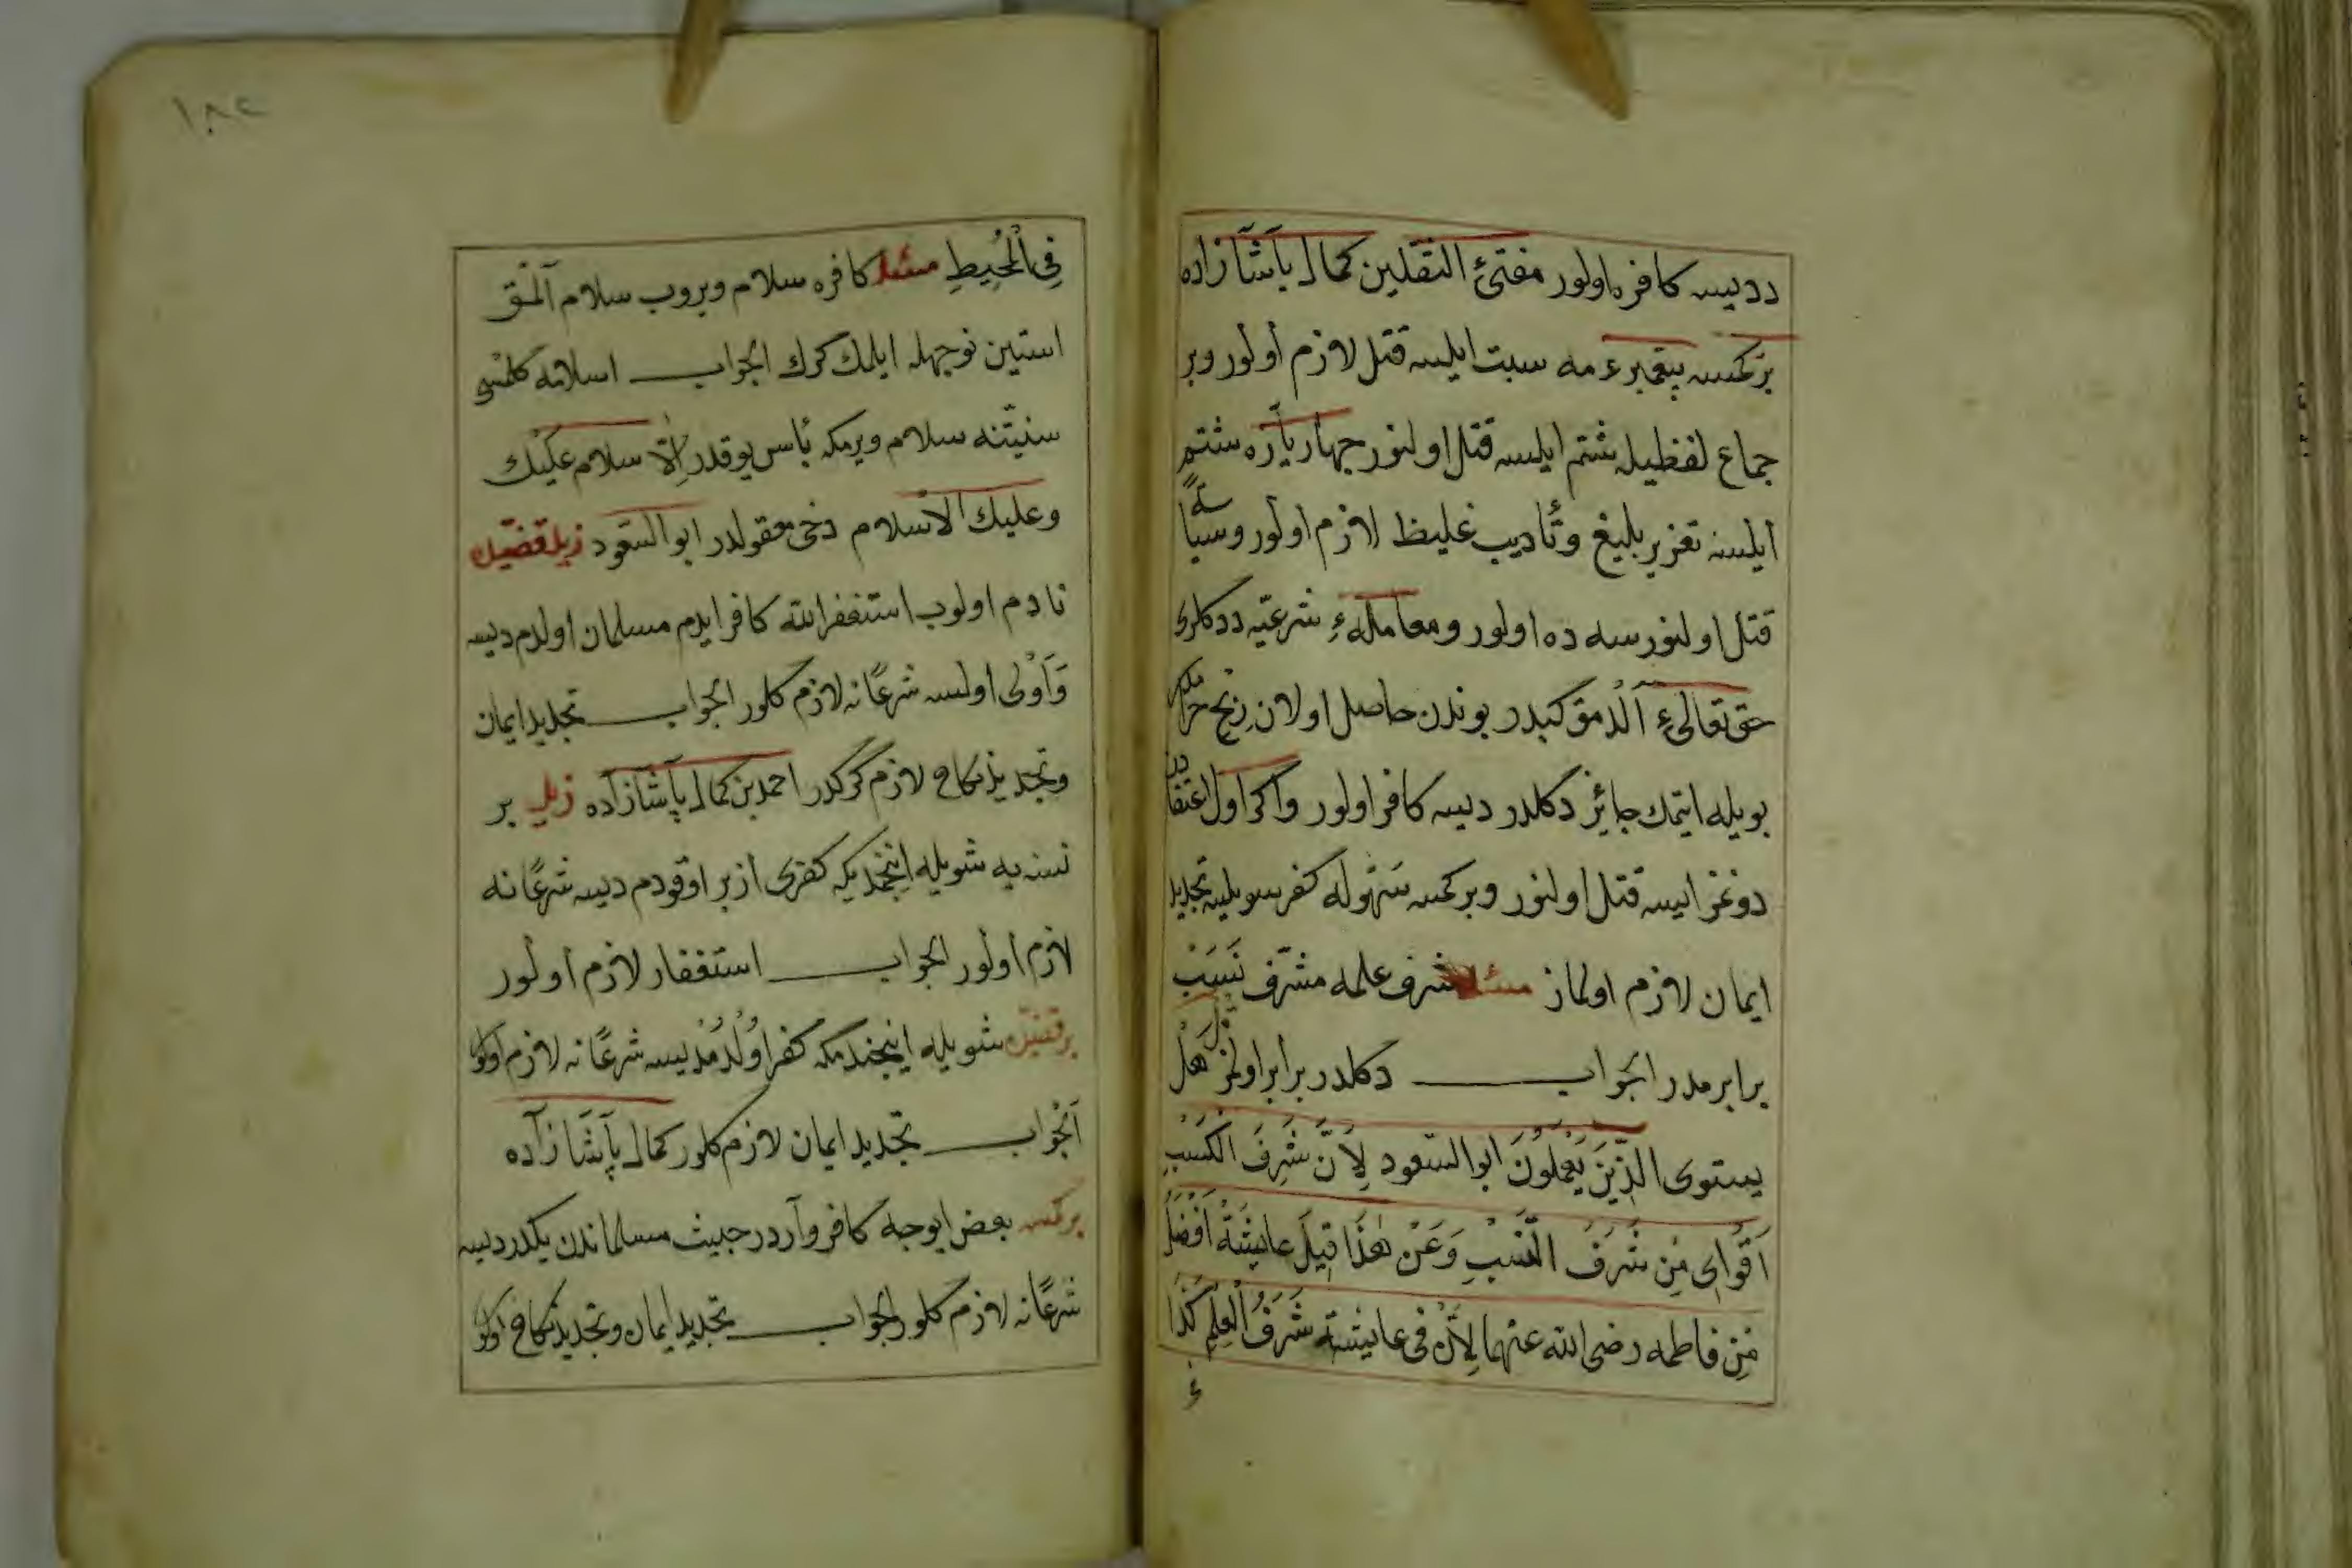 درديسه كافره اولور مفتئ الثقلين كمال پاشازاده
بركمسه پيغمبرء مه سبت ايلسه قتل لازم أولور وبر
جماع لفظيله شتم ايلسه قتل اولنور جهار ياره شتم
أيلسه تعزير بليغ وتأديب غليظ لازم اولور وسياسةً
قتل اولنورسه ده اولور ومعاملهء شرعيه ددكلرى
حق تعالىء آلدمق كبيدر بوندن حاصل اولان ربح حرام
بويله ايتمك جايئز دكلدر ديسه كافر اولور واكر اول اعتقادده
دوغز ايسه قتل اولنور وبر كمسه سهوله كفر سويليسه تجديد
ايمان لازم اولماز مسئله شرف علمه مشرف نسب
برابر مدر الجواب دكلدر برابر اولمز قل هل
يستوى الذين يعملون ابو السعود لأن شرف الكسب
أقواى من شرف النسب وعن هذا قيل عايشة افضل
من فاطمه رضى الله عنهما لأن فى عايشة شرف العلم كذا
فى المحيط مسئله كافره سلام ويروب سلام آلمق
استين نوجهله ايلمك كرك الجواب اسلامه كلمسى
سنيتنه سلام ويرمكه بأس يوقدر إلا سلام عليك
وعليك الاسلام دخى معقولدر ابو السعود زيد قضيه
نادم اولوب استغفر الله كافر ايدم مسلمان اولدم ديسه
وأولى أولسه شرعًا نه لازم كلور الجواب تجديد ايمان
وتجديد نكاح لازم كركدر احمد بن كمال پاشازاده زيد بر
نسنه يه شويله اينجندمكه كفرى أزبر اوقودم ديسه شرعًا نه
لازم أولور الجواب استغفار لازم أولور
شويله اينجندمكه كفر اولدم ديسه شرعًا نه لازم اولور
الجواب تجديد ايمان لازم كلور كمال پاشازاده
بركمسه بعض ايوجه كافر وآردر خبيث مسلماندن يكدر ديسه
شرعًا نه لازم كلور الجواب تجديد ايمان وتجديد نكاح اولور
١٨٢